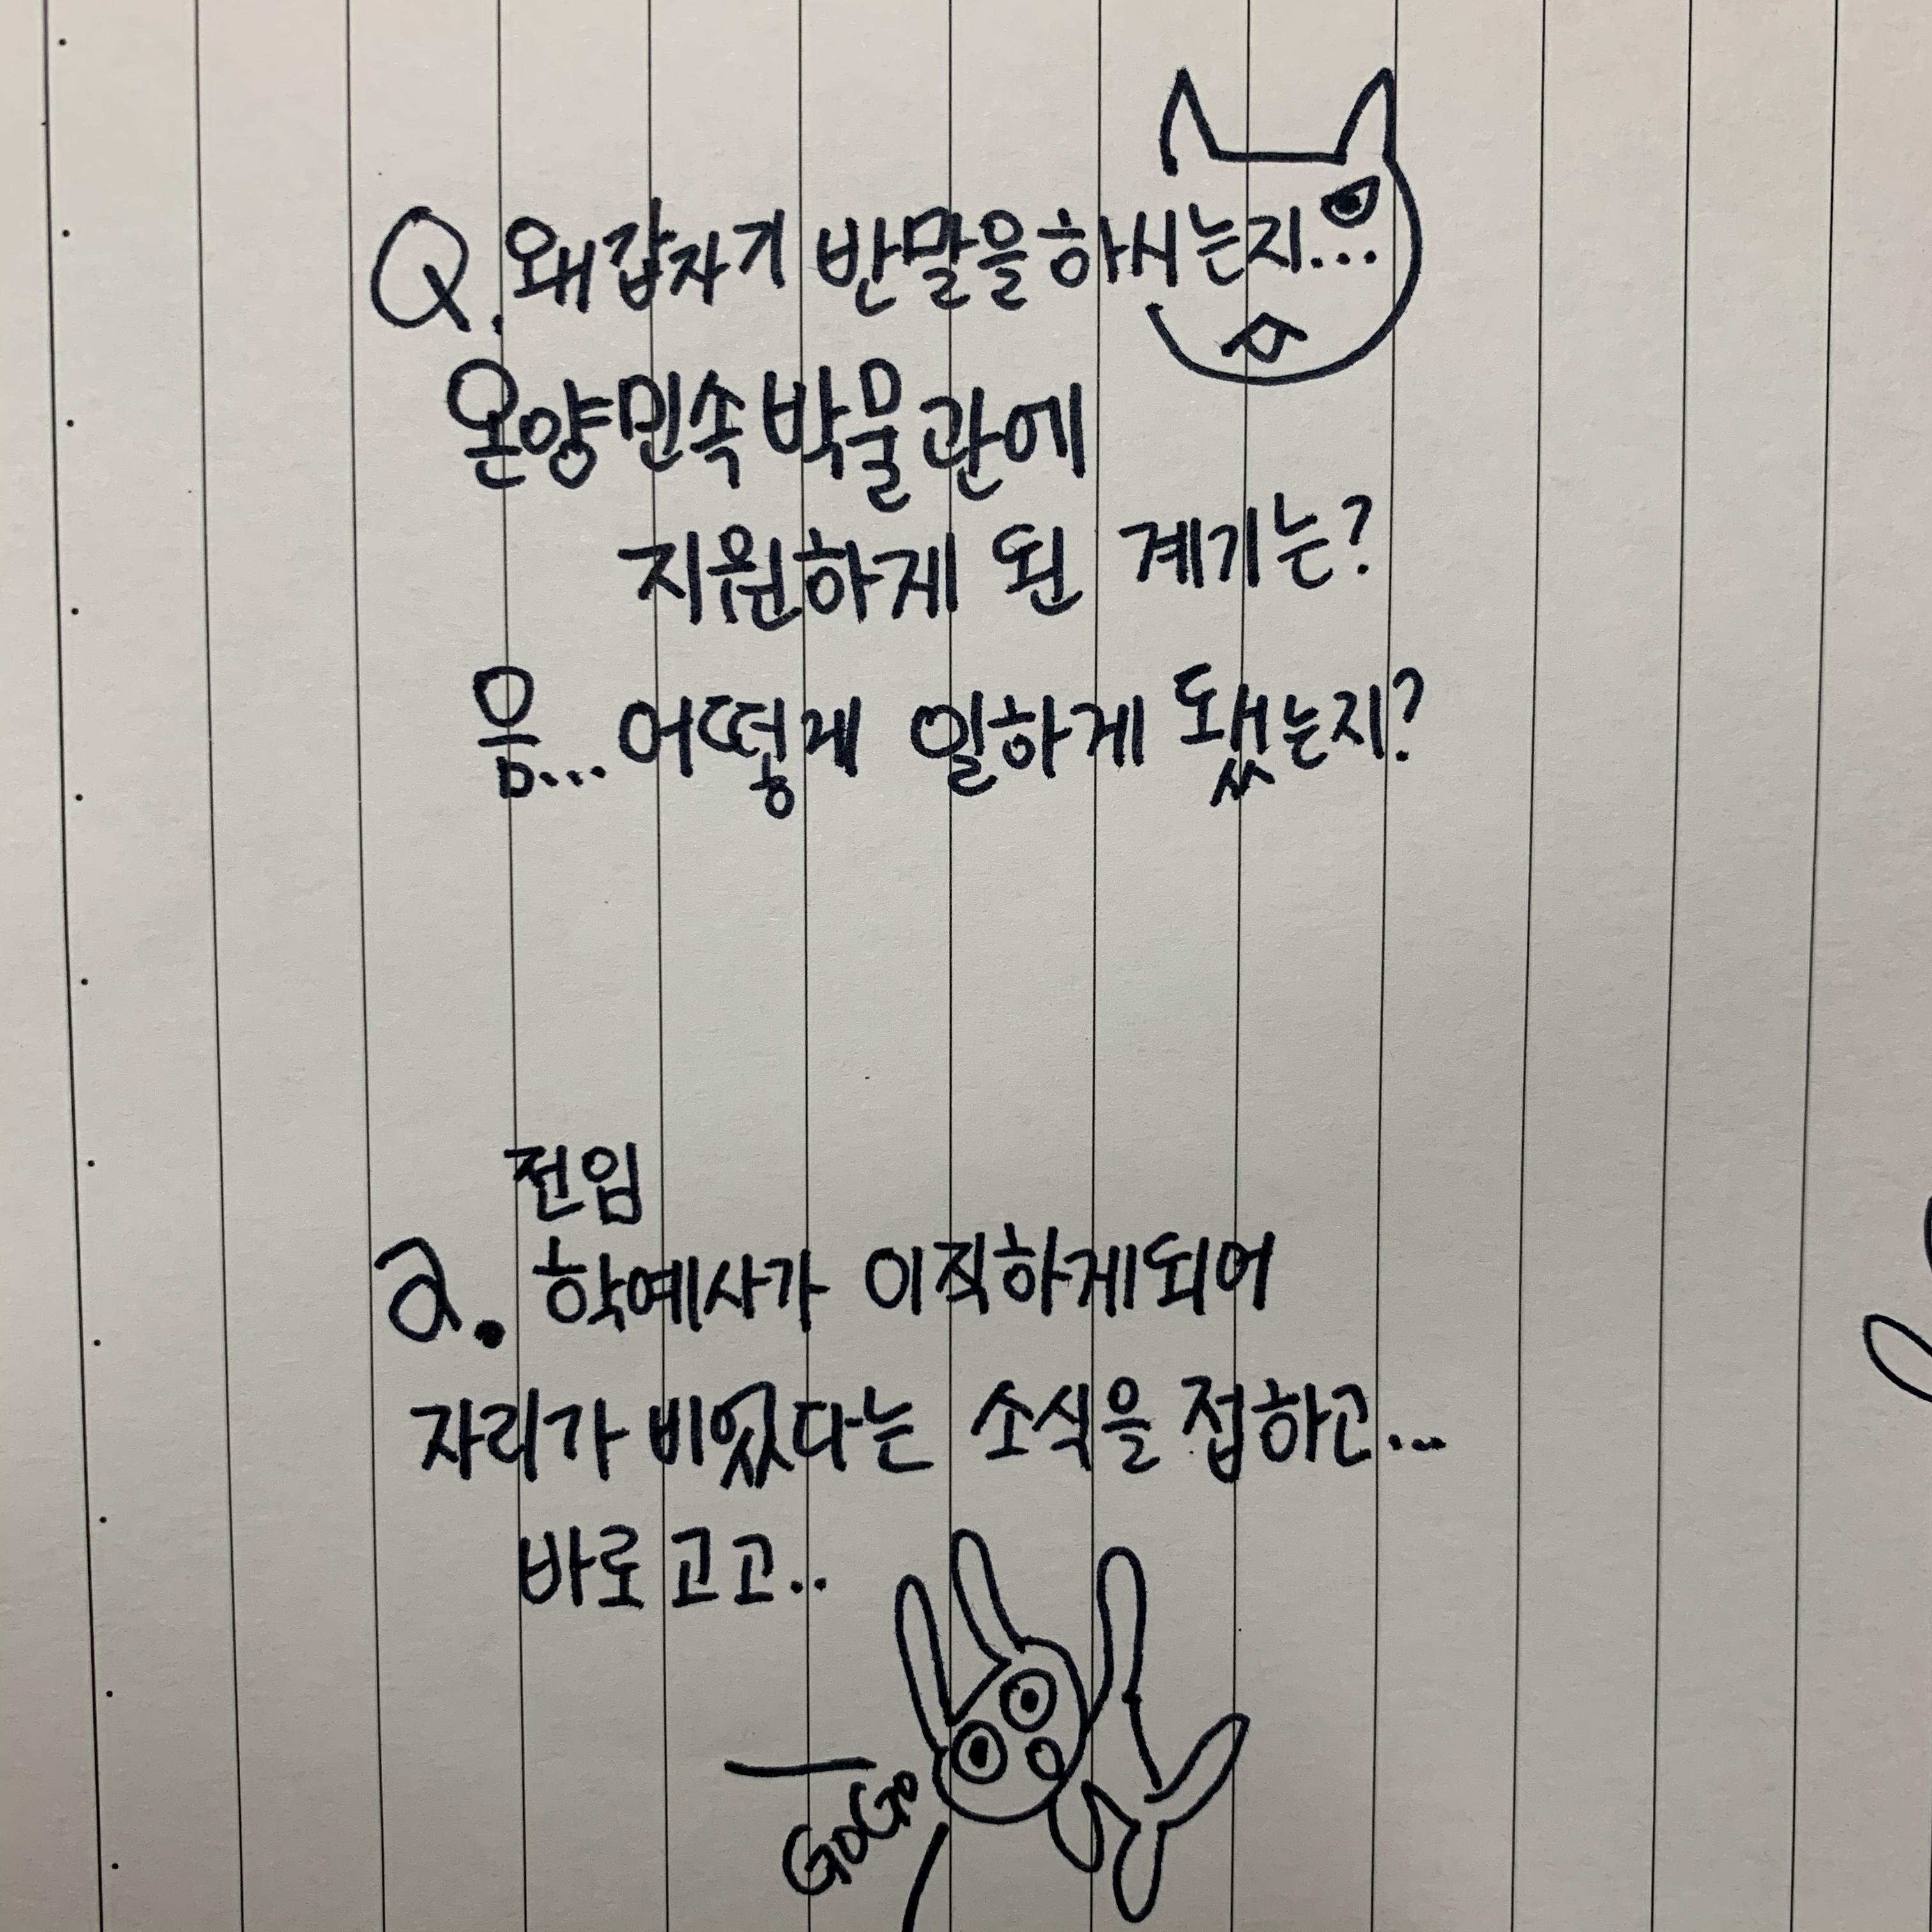 Q. 왜 갑자기 반말을 하시는지...
온양민속박물관에
지원하게 된 계기는?
음... 어떻게 일하게 됐는지?
전임
a. 학예사가 이직하게되어
자리가 비었다는 소식을 접하고...
바로 고고..
GOGO